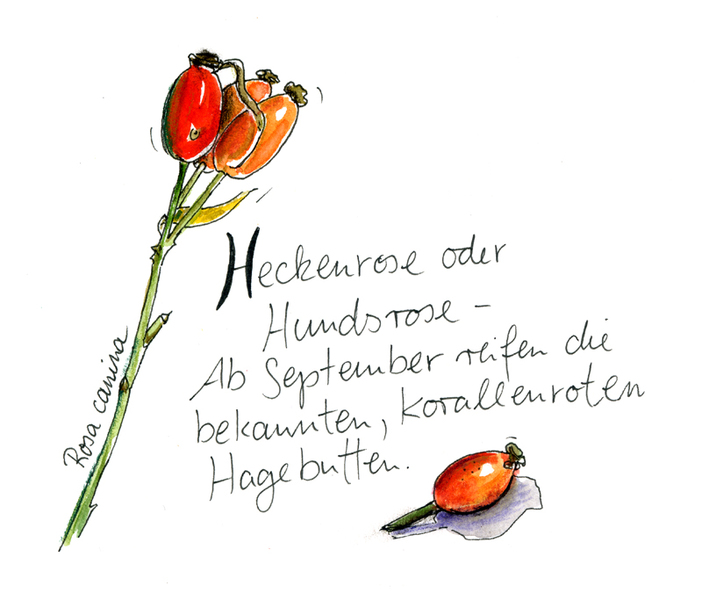 Rosa canina
Heckenrose oder
Hundsrose –
Ab September reifen die
bekannten, korallenroten
Hagebutten.